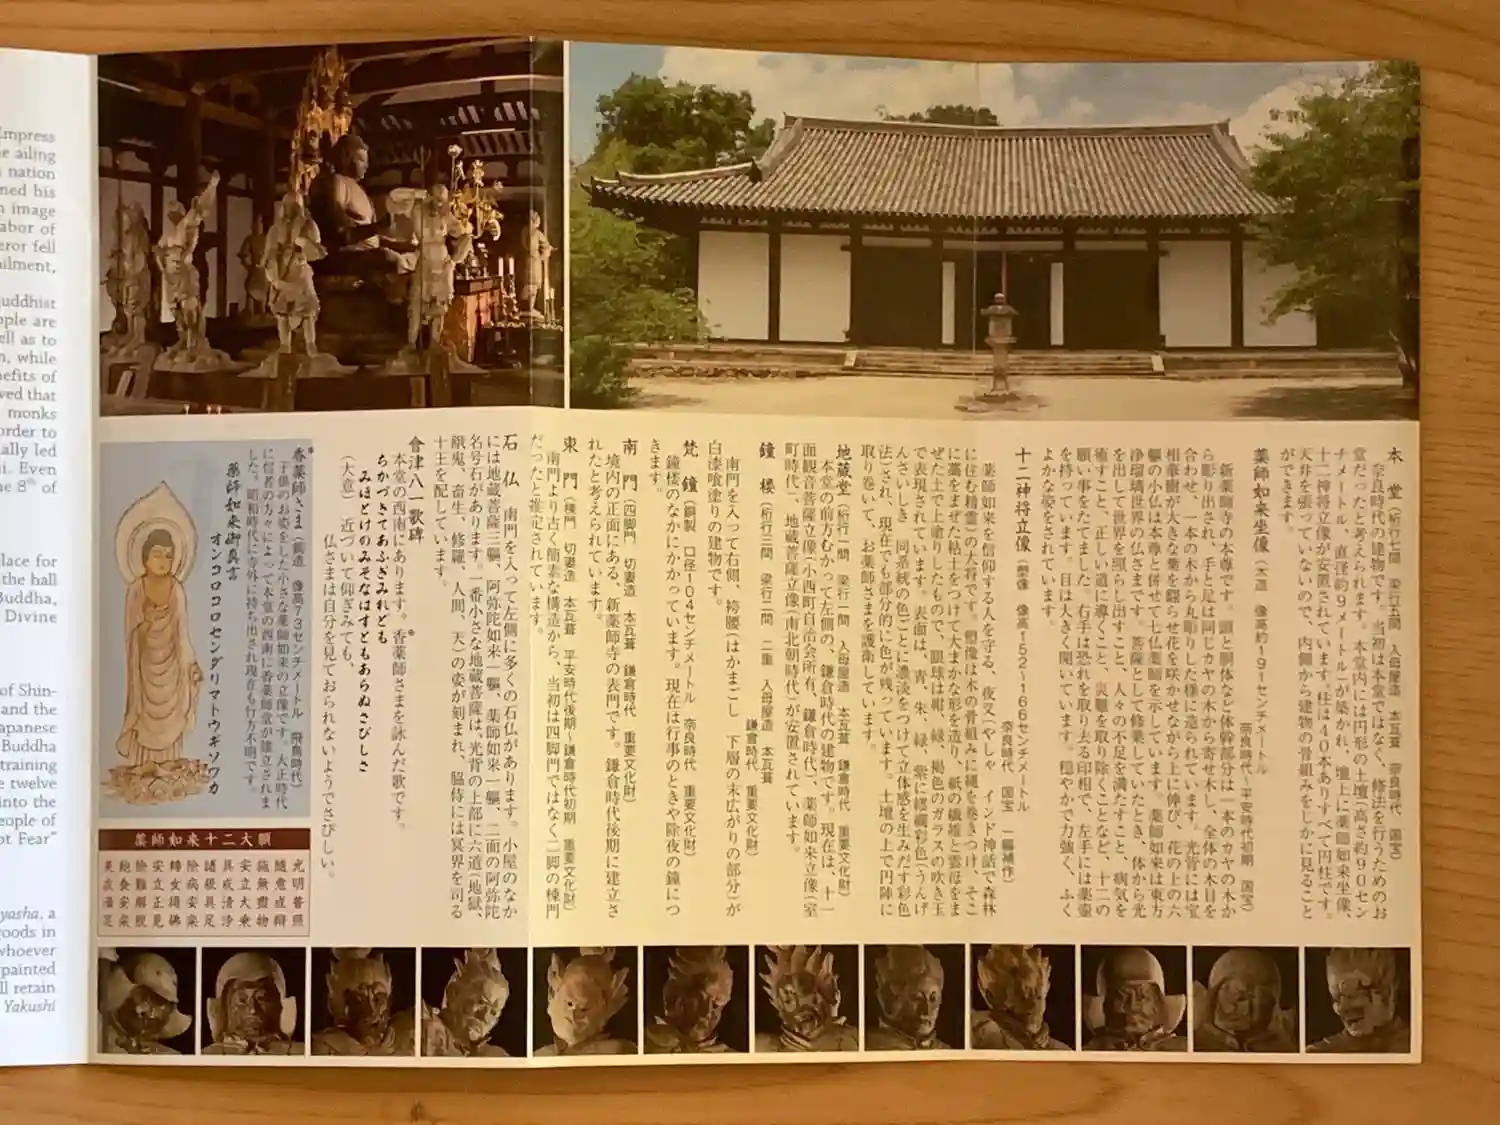 Empress
e ailing
nation
ned his
n image
abor of
eror fell
ailment,
Buddhist
ople are
ell as to
n, while
nefits of
ved that
monks
order to
ally led
i. Even
ne 8th of
lace for
the hall
Buddha,
Divine
of Shin-
and the
apanese
Buddha
training
e twelve
into the
eople of
ot Fear"
yasha, a
goods in
whoever
painted
ll retain
Yakushi
本　堂（桁行七間　梁行五間　入母屋造　本瓦葺　奈良時代　国宝）
奈良時代の建物です。当初は本堂ではなく、修法を行うためのお
堂だったと考えられます。本堂内には円形の土壇（高さ約９０セン
チメートル、直径約９メートル）が築かれ、壇上に薬師如来坐像、
十二神将立像が安置されています。柱は４０本ありすべて円柱です。
天井を張っていないので、内側から建物の骨組みをじかに見ること
ができます。
薬師如来坐像（木造　像高約１９１センチメートル
奈良時代〜平安時代初期　国宝）
新薬師寺の本尊です。頭と胴体など体幹部分は一本のカヤの木か
ら彫り出され、手と足は同じカヤの木から寄せ木し、全体の木目を
合わせ、一本の木から丸彫りした様に造られています。光背には宝
相華樹が大きな葉を翻らせ花を咲かせながら上に伸び、花の上の六
軀の小仏は本尊と併せて七仏薬師を示しています。薬師如来は東方
浄瑠璃世界の仏さまです。菩薩として修業していたとき、体から光
を出して世界を照らし出すこと、人々の不足を満たすこと、病気を
癒すこと、正しい道に導くこと、災難を取り除くことなど、十二の
願い事をたてました。右手は恐れを取り去る印相で、左手には薬壷
を持っています。目は大きく開いています。穏やかで力強く、ふく
よかな姿をされています。
十二神将立像（塑像　像高１５２〜１６６センチメートル
奈良時代　国宝　一軀補作）
薬師如来を信仰する人を守る、夜叉（やしゃ　インド神話で森林
に住む精霊）の大将です。塑像は木の骨組みに縄を巻きつけ、そこ
に藁をまぜた粘土をつけて大まかな形を造り、紙の繊維と雲母をま
ぜた土で上塗りしたもので、眼球は紺、緑、褐色のガラスの吹き玉
で表現されています。表面は、青、朱、緑、紫に繧繝彩色（うんげ
んさいしき　同系統の色ごとに濃淡をつけて立体感を生みだす彩色
法）され、現在でも部分的に色が残っています。土壇の上で円陣に
取り巻いて、お薬師さまを護衛しています。
地蔵堂（桁行一間　梁行一間　入母屋造　本瓦葺　鎌倉時代　重要文化財）
本堂の前方むかって左側の、鎌倉時代の建物です。現在は、十一
面観音菩薩立像（小西町自治会所有、鎌倉時代）、薬師如来立像（室
町時代）、地蔵菩薩立像（南北朝時代）が安置されています。
鐘　楼（桁行三間　梁行二間　二重　入母屋造　本瓦葺
鎌倉時代　重要文化財）
南門を入って右側、袴腰（はかまごし　下層の末広がりの部分）が
白漆喰塗りの建物です。
梵　鐘（銅製　口径１０４センチメートル　奈良時代　重要文化財）
鐘楼のなかにかかっています。現在は行事のときや除夜の鐘につ
きます。
南　門（四脚門　切妻造　本瓦葺　鎌倉時代　重要文化財）
境内の正面にある、新薬師寺の表門です。鎌倉時代後期に建立さ
れたと考えられています。
東　門（棟門　切妻造　本瓦葺　平安時代後期〜鎌倉時代初期　重要文化財）
南門より古く簡素な構造から、当初は四脚門ではなく二脚の棟門
だったと推定されています。
石　仏　南門を入って左側に多くの石仏があります。小屋のなか
には地蔵菩薩三軀、阿弥陀如来一軀、薬師如来一軀、二面の阿弥陀
名号石があります。一番小さな地蔵菩薩は、光背の上部に六道（地獄、
餓鬼、畜生、修羅、人間、天）の姿が刻まれ、脇侍には冥界を司る
十王を配しています。
會津八一歌碑
本堂の西南にあります。香薬師さまを詠んだ歌です。
ちかづきてあふぎみれども
みほとけのみそなはすともあらぬさびしさ
（大意）　近づいて仰ぎみても、
仏さまは自分を見ておられないようでさびしい。
香薬師さま（銅造　像高７３センチメートル　飛鳥時代）
子供のお姿をした小さな薬師如来の立像です。大正時代
に信者の方々によって本堂の西南に香薬師堂が建立されま
した。昭和時代に寺外に持ち出され現在も行方不明です。
薬師如来御真言
オンコロコロセンダリマトウギソワカ
薬師如来十二大願
光明普照
随意成辯
施無盡物
安立大乗
具戒清浄
諸根具足
除病安楽
轉女得佛
安立正見
除難解脱
飽食安楽
美衣満足